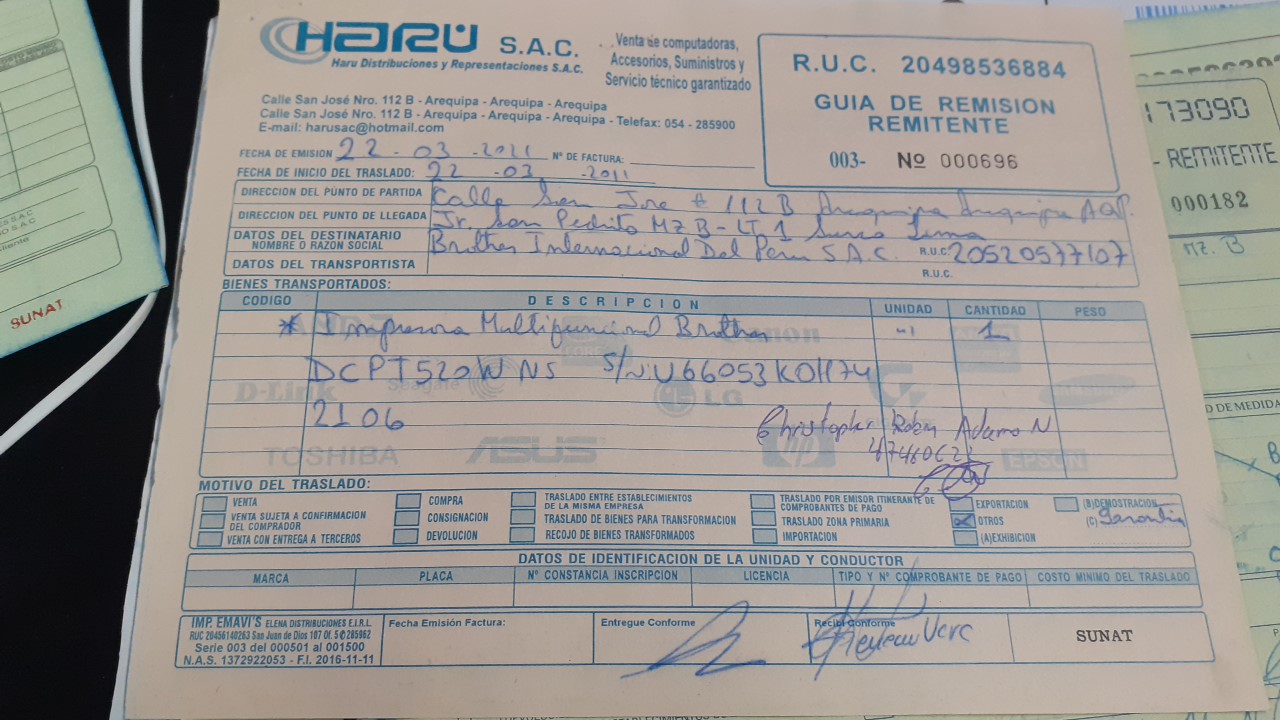 HARU S.A.C.
Haru Distribuciones y Representaciones S.A.C.
Venta de computadoras,
Accesorios, Suministros y
Servicio técnico garantizado
Calle San José Nro. 112 B - Arequipa - Arequipa - Arequipa
Calle San José Nro. 112 B - Arequipa - Arequipa - Arequipa - Telefax: 054 - 285900
E-mail: harusac@hotmail.com
R.U.C. 20498536884
GUIA DE REMISION
REMITENTE
003- Nº 000696
FECHA DE EMISION 22 - 03 - 2021 Nº DE FACTURA:
FECHA DE INICIO DEL TRASLADO: 22 - 03 - 2011
DIRECCION DEL PUNTO DE PARTIDA Calle San Jose # 112 B Arequipa Arequipa AQP.
DIRECCION DEL PUNTO DE LLEGADA Jr. San Pedrito MZ B - LT. 1 Surco Lima
DATOS DEL DESTINATARIO
NOMBRE O RAZON SOCIAL Brother Internacional Del Peru S.A.C. R.U.C. 20520577107
DATOS DEL TRANSPORTISTA R.U.C.
BIENES TRANSPORTADOS:
CODIGO DESCRIPCION UNIDAD CANTIDAD PESO
* Impresora Multifuncional Brother 1
DCPT520WNS S/N: U66053K0H74
2106
Christopher Robin Adamo N
D-Link Seagate LG
TOSHIBA ASUS hp EPSON
MOTIVO DEL TRASLADO:
VENTA COMPRA TRASLADO ENTRE ESTABLECIMIENTOS DE LA MISMA EMPRESA TRASLADO POR EMISOR ITINERANTE DE COMPROBANTES DE PAGO EXPORTACION (B)DEMOSTRACION
VENTA SUJETA A CONFIRMACION DEL COMPRADOR CONSIGNACION TRASLADO DE BIENES PARA TRANSFORMACION TRASLADO ZONA PRIMARIA X OTROS (C) Garantia
VENTA CON ENTREGA A TERCEROS DEVOLUCION RECOJO DE BIENES TRANSFORMADOS IMPORTACION (A)EXHIBICION
DATOS DE IDENTIFICACION DE LA UNIDAD Y CONDUCTOR
MARCA PLACA Nº CONSTANCIA INSCRIPCION LICENCIA TIPO Y Nº COMPROBANTE DE PAGO COSTO MINIMO DEL TRASLADO
IMP. EMAVI'S ELENA DISTRIBUCIONES E.I.R.L.
RUC 20456140263 San Juan de Dios 107 Of. 5 285962
Serie 003 del 000501 al 001500
N.A.S. 1372922053 - F.I. 2016-11-11
Fecha Emisión Factura:
Entregue Conforme
Recibi Conforme
SUNAT
SUNAT
173090
- REMITENTE
000182
MZ. B
D DE MEDIDA